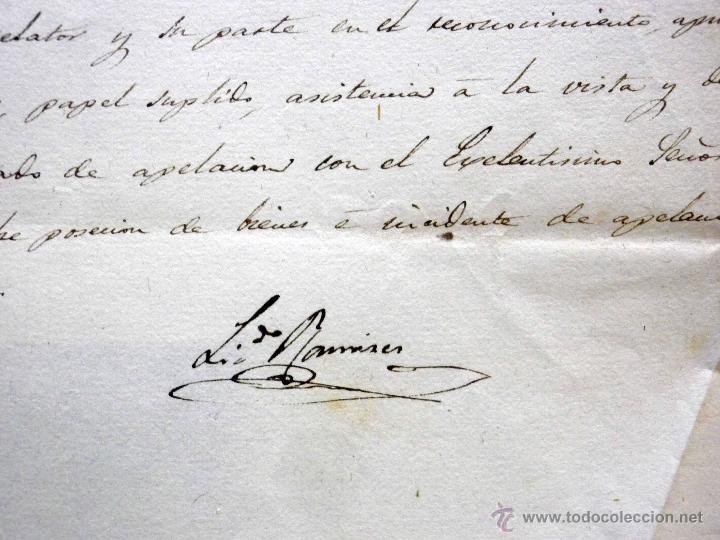 elator y su parte en el reconocimiento, apun
, papel suplido, asistencia á la vista y de
ado de apelacion con el Exelentisimo Señor
re posecion de bienes é incidente de apelaci
Lido Ramires
www.todocoleccion.net